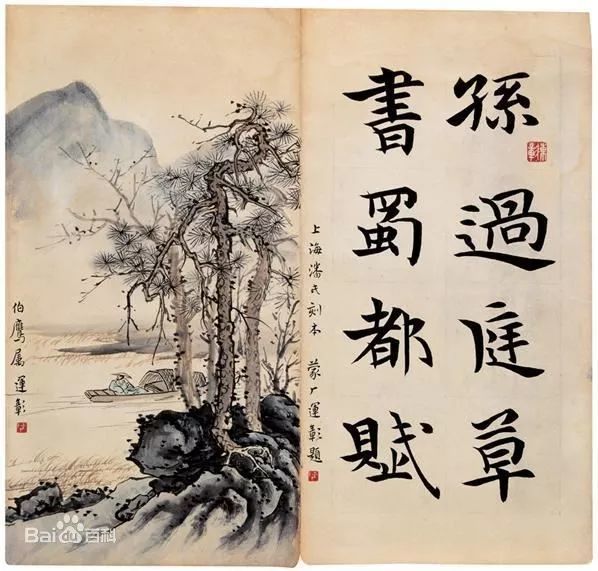 孫過庭草
書蜀都賦
上海潘氏刻本 蒙厂運彰題
伯鷹属運彰
Bai百科